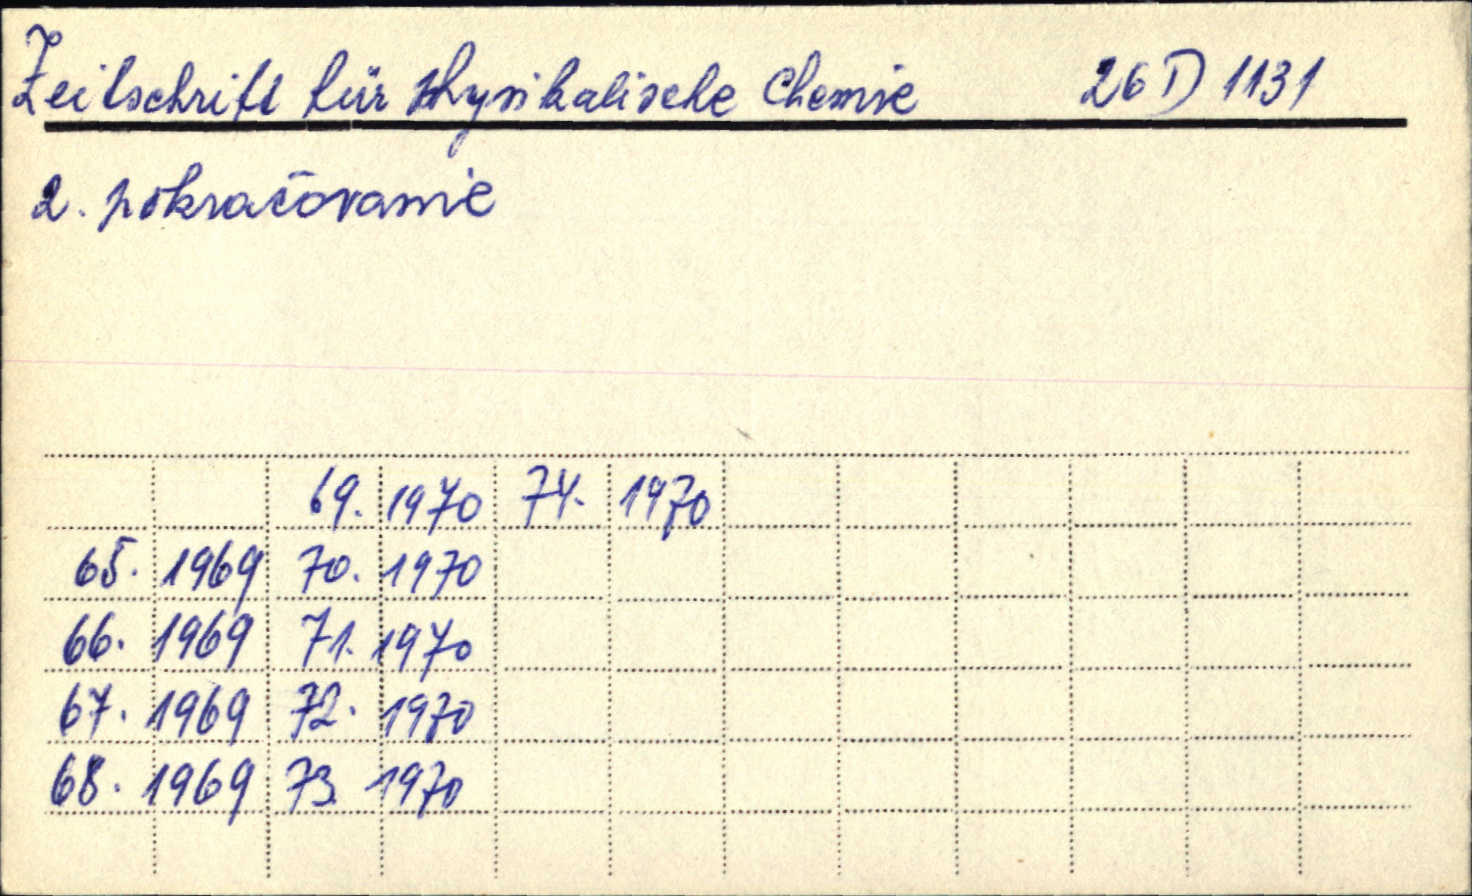 Zeitschrift für Physikalische Chemie 26 D 1131
2. pokračovanie
69. 1970 74. 1970
65. 1969 70. 1970
66. 1969 71. 1970
67. 1969 72. 1970
68. 1969 73. 1970